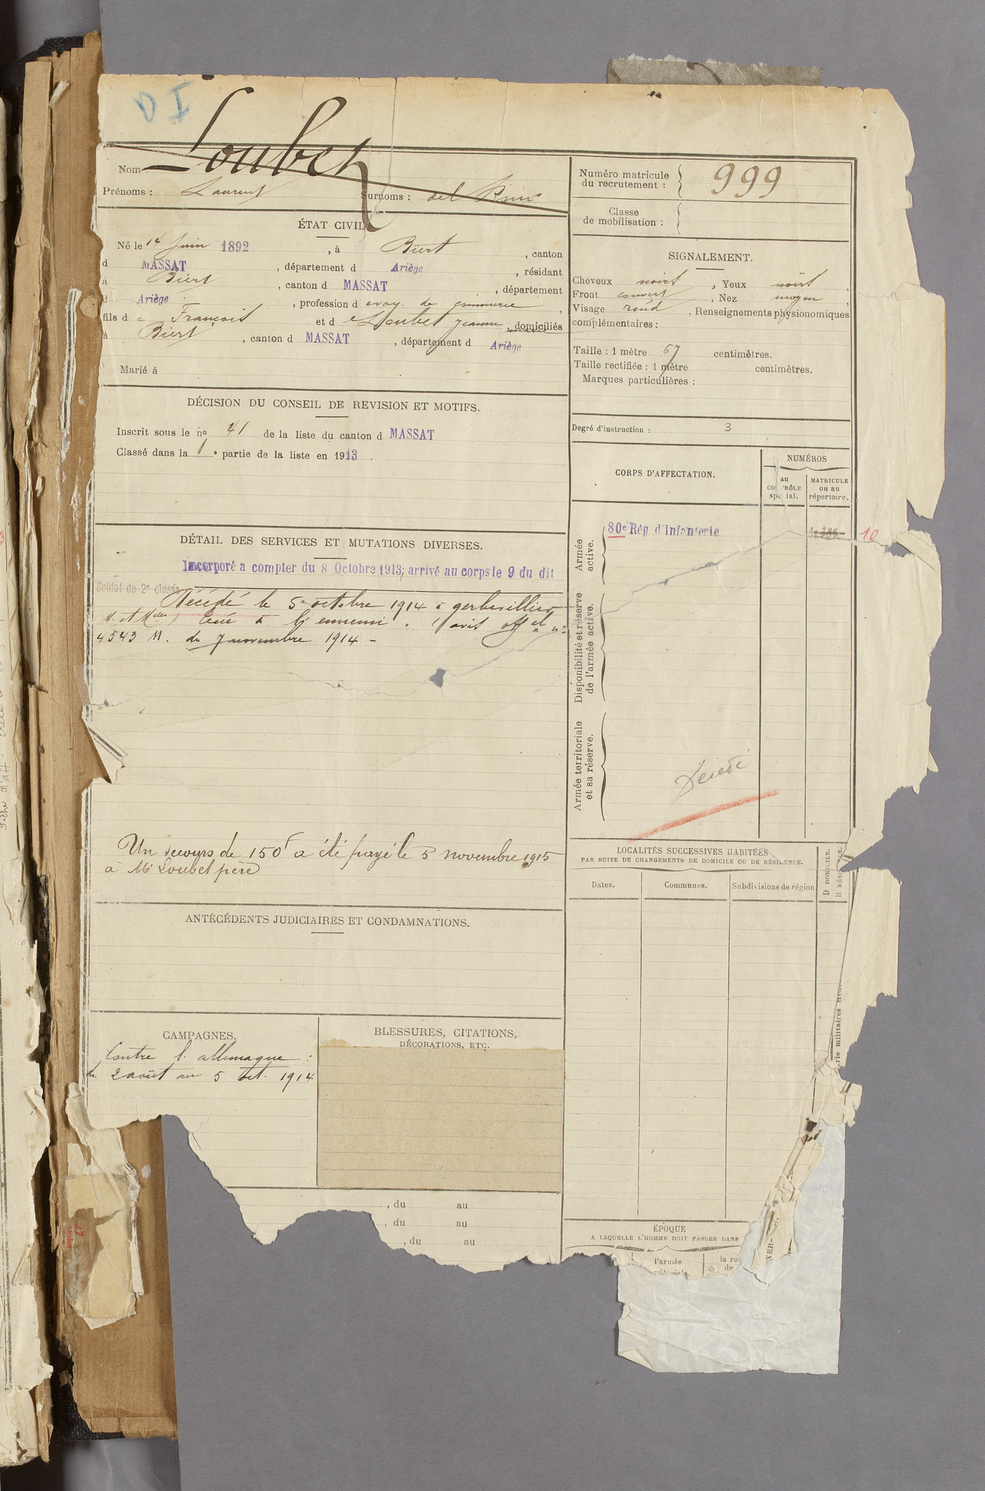 D I
Loubet
Nom
Prénoms : Laurent Surnoms : del
Numéro matricule du recrutement : 999
Classe de mobilisation :
ÉTAT CIVIL.
Né le 14 Juin 1892, à Biert, canton
d MASSAT, département d Ariège, résidant
à Biert, canton d MASSAT, département
d Ariège, profession d
fils d François et d Loubet Jeanne, domiciliés
à Biert, canton d MASSAT, département d Ariège
Marié à
SIGNALEMENT.
Cheveux noirs, Yeux noirs,
Front couvert, Nez moyen,
Visage rond, Renseignements physionomiques
complémentaires :
Taille : 1 mètre 67 centimètres.
Taille rectifiée : 1 mètre centimètres.
Marques particulières :
Degré d'instruction : 3
DÉCISION DU CONSEIL DE REVISION ET MOTIFS.
Inscrit sous le nº 41 de la liste du canton d MASSAT
Classé dans la 1e partie de la liste en 1913.
CORPS D'AFFECTATION.
NUMÉROS
AU CONTRÔLE spécial.
MATRICULE OU AU répertoire.
Armée active.
80e Rég d'Infanterie
10
Disponibilité et réserve de l'armée active.
Armée territoriale et sa réserve.
Décédé
DÉTAIL DES SERVICES ET MUTATIONS DIVERSES.
Incorporé a compter du 8 Octobre 1913, arrivé au corps le 9 du dit
Soldat de 2e classe
Décédé le 5 octobre 1914 à gerbevillier
M. et Mlle, tué à l'ennemi. avis offel nº
4543 M. du 7 novembre 1914 -
Un secours de 150f a été payé le 5 novembre 1915
à Mr Loubet père
ANTÉCÉDENTS JUDICIAIRES ET CONDAMNATIONS.
LOCALITÉS SUCCESSIVES HABITÉES
PAR SUITE DE CHANGEMENTS DE DOMICILE OU DE RÉSIDENCE.
Dates. Communes. Subdivisions de région
D DOMICILE.
CAMPAGNES.
Contre l'allemagne :
du 2 août au 5 oct. 1914
BLESSURES, CITATIONS,
DÉCORATIONS, ETC.
, du au
, du au
, du au
ÉPOQUE
A LAQUELLE L'HOMME DOIT PASSER DANS
l'armée